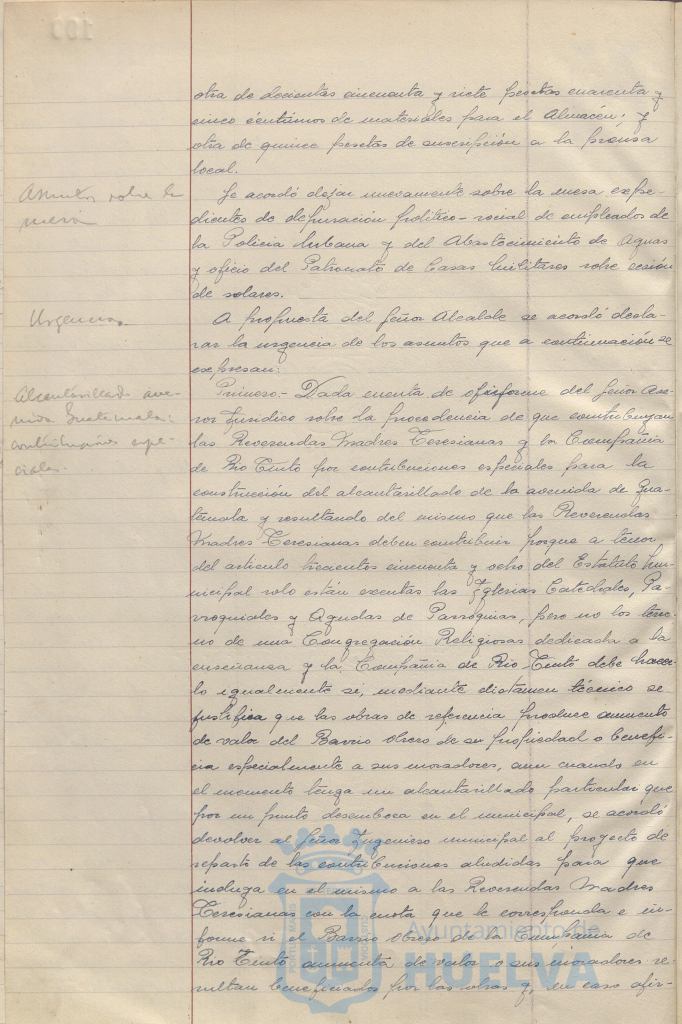 otra de docientas cincuenta y siete pesetas cuarenta y
cinco céntimos de materiales para el Almacén; y
otra de quince pesetas de suscripción a la prensa
local.
Asuntos sobre la
mesa
Se acordó dejar nuevamente sobre la mesa expe-
dientes de depuración político-social de empleados de
la Policía Urbana y del Abastecimiento de Aguas
y oficio del Patronato de Casas Militares sobre cesión
de solares.
Urgencias
A propuesta del Señor Alcalde se acordó decla-
rar la urgencia de los asuntos que a continuación se
expresan:
Alcantarillado ave-
nida Guatemala:
contribuciones espe-
ciales.
Primero.- Dada cuenta de informe del Señor Ase-
sor Jurídico sobre la procedencia de que contribuyan
las Reverendas Madres Teresianas y la Compañía
de Rio Tinto por contribuciones especiales para la
construcción del alcantarillado de la avenida de Gua-
temala y resultando del mismo que las Reverendas
Madres Teresianas deben contribuir porque a tenor
del artículo trecientos cincuenta y ocho del Estatuto Mu-
nicipal solo están exentas las Iglesias Catedrales, Pa-
rroquiales y Ayudas de Parroquias, pero no los terre-
no de una Congregación Religiosas dedicada a la
enseñanza y la Compañía de Rio-Tinto debe hacer-
lo igualmente si, mediante dictamen técnico se
justifica que las obras de referencia produce aumento
de valor del Barrio obrero de su propiedad o benefi-
cia especialmente a sus moradores, aun cuando en
el momento tenga un alcantarillado particular que
por un punto desemboca en el municipal, se acordó
devolver al Señor Ingeniero municipal al proyecto de
reparto de las contribuciones aludidas para que
incluya en el mismo a las Reverendas Madres
Teresianas con la cuota que le corresponda e in-
forme si el Barrio obrero de la Compañía de
Rio Tinto aumenta de valor o sus moradores re-
sultan beneficiados por las obras y, en caso afir-
Ayuntamiento de
HUELVA